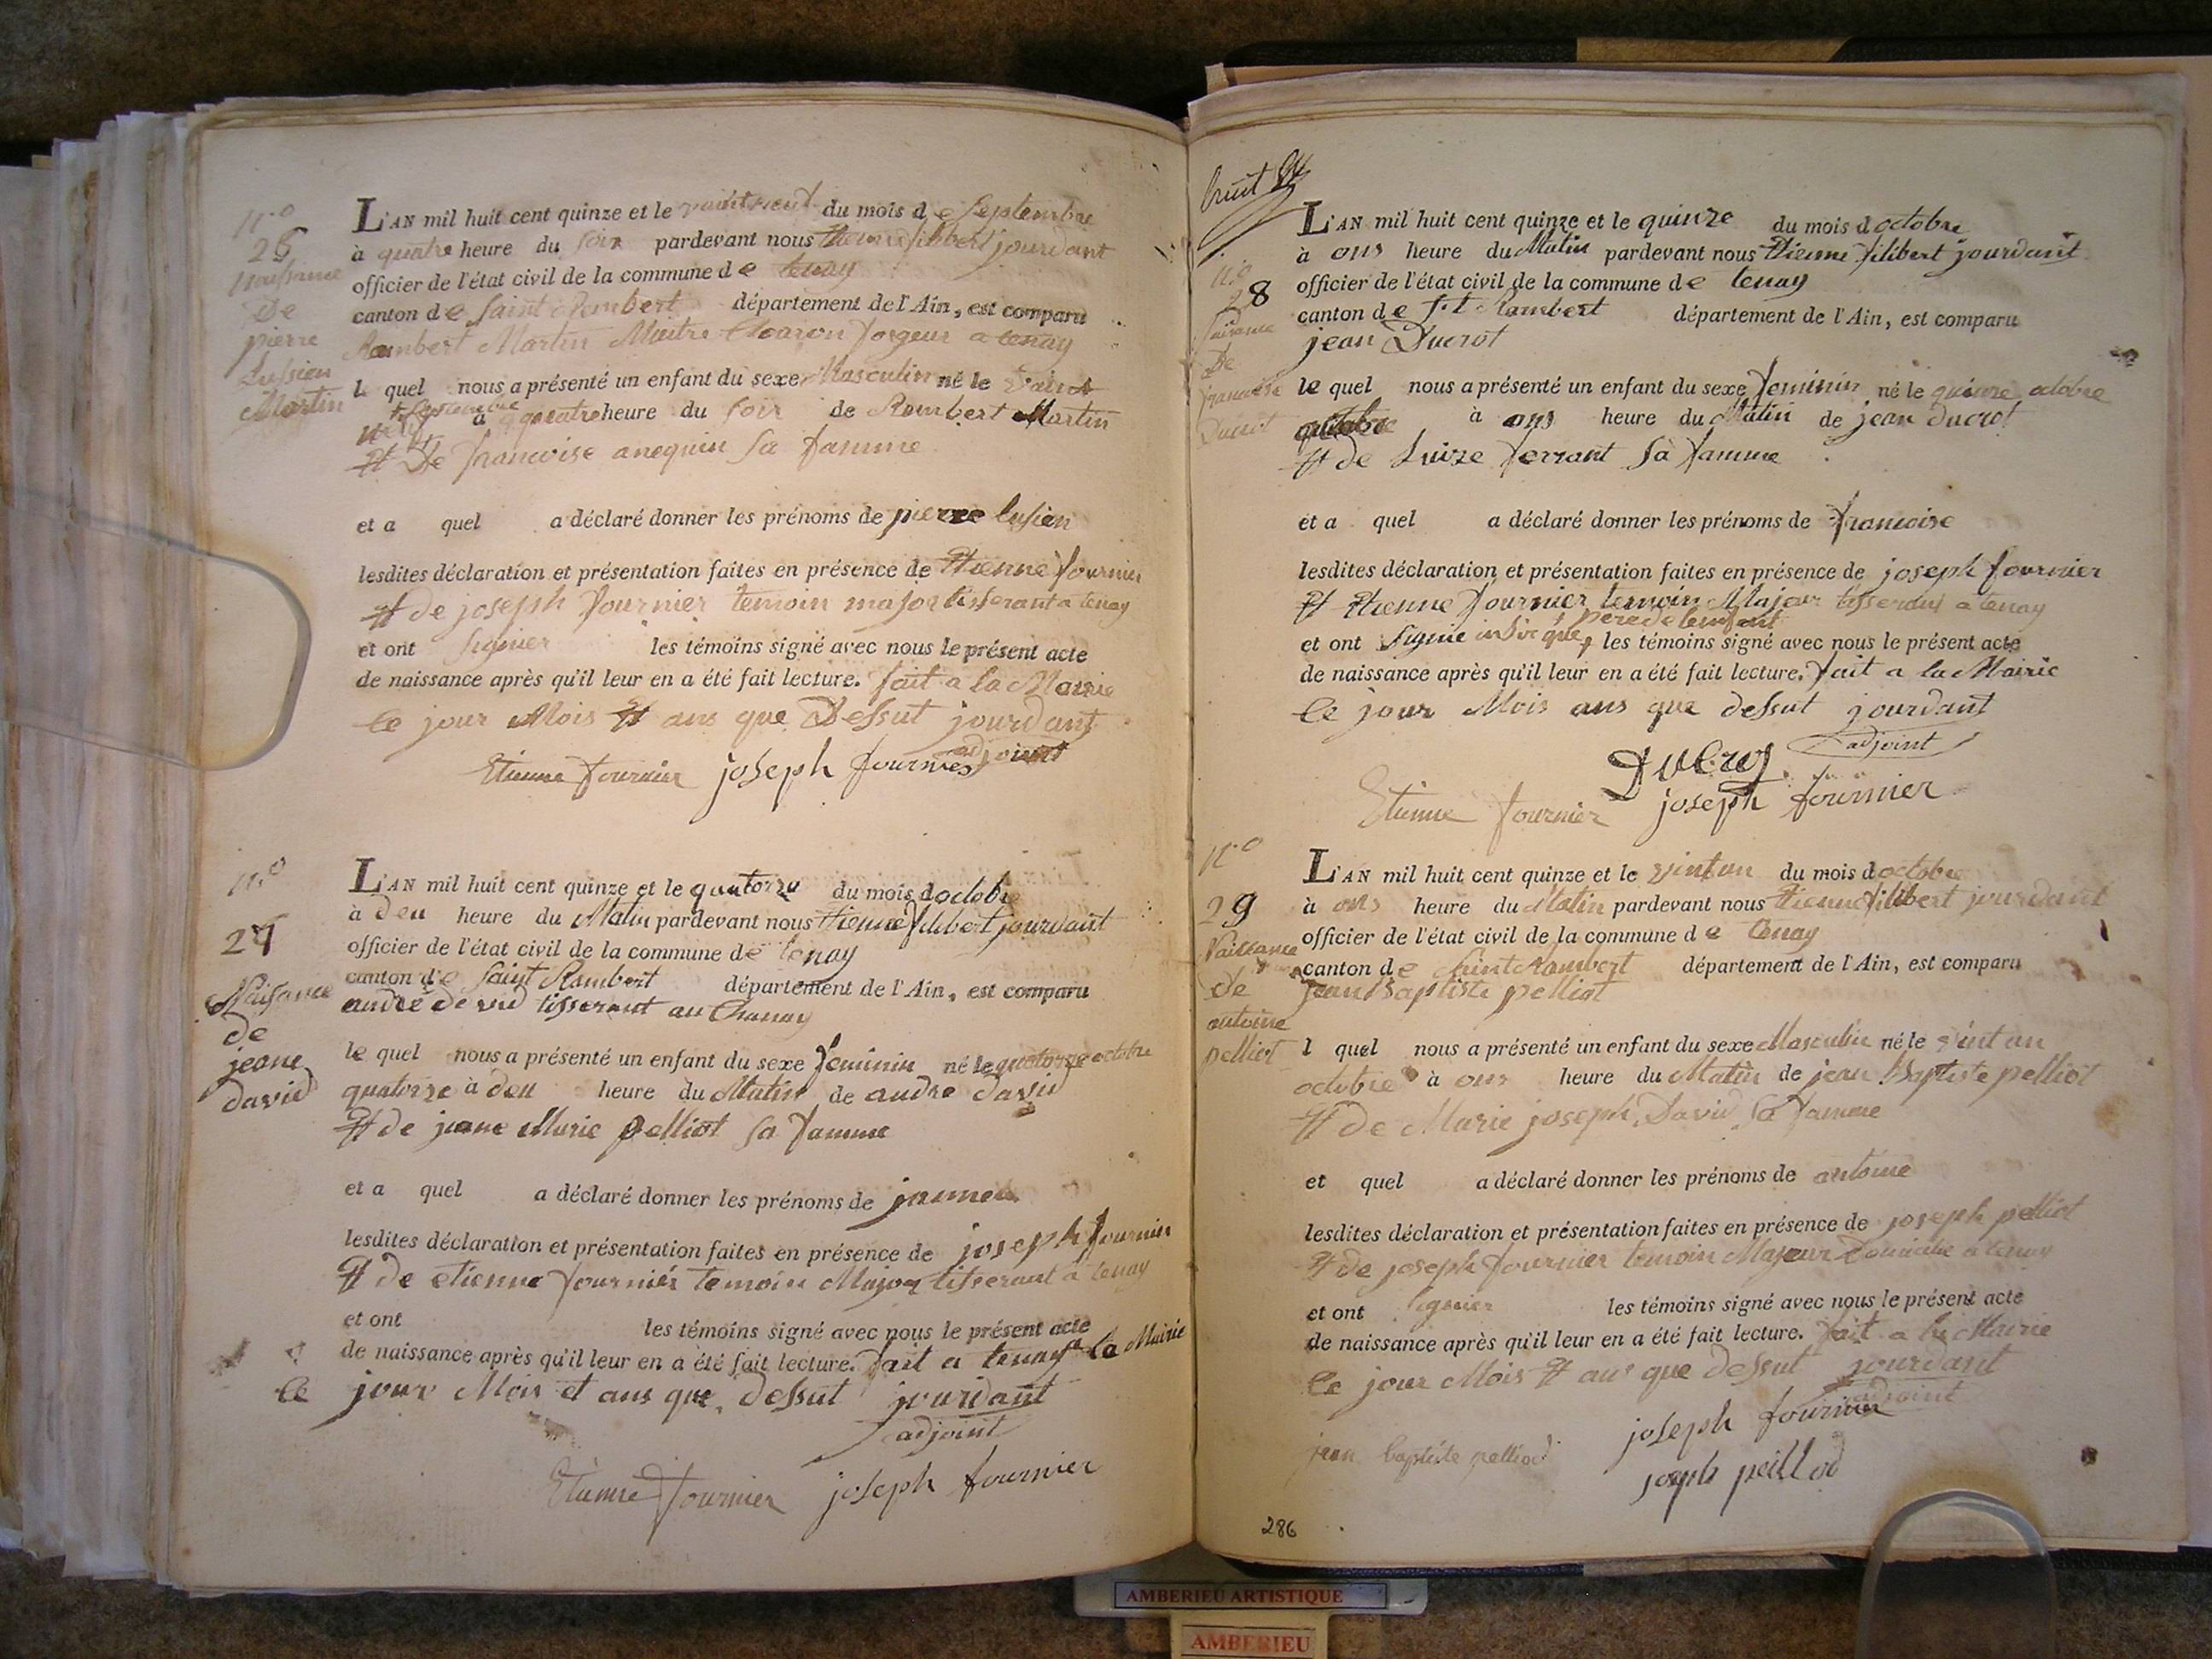 n.o
26
Naissance
De
pierre
Lusien
Martin
L'AN mil huit cent quinze et le vaint neuf du mois de Septembre
à quatre heure du soir pardevant nous Etienne filibert jourdant
officier de l'état civil de la commune de tenay
canton de Saint Rambert département de l'Ain, est comparu
Rambert Martin Maitre Charon forgeur a tenay
l quel nous a présenté un enfant du sexe Masculin né le vaint
neuf Septembre à quatre heure du soir de Rambert Martin
Et De francoise anequin sa famme
et a quel a déclaré donner les prénoms de pierre lusien
lesdites déclaration et présentation faites en présence de Etienne fournier
Et de joseph fournier temoin major tisserant a tenay
et ont signier les témoins signé avec nous le présent acte
de naissance après qu'il leur en a été fait lecture. fait a la Mairie
le jour Mois Et ans que Dessut jourdant
adjoint
Etienne fournier joseph fournier
n.o
27
Naisance
de
jeane
david
L'AN mil huit cent quinze et le quatorze du mois doctobre
à deu heure du Matin pardevant nous Etienne filibert jourdant
officier de l'état civil de la commune de tenay
canton de Saint Rambert département de l'Ain, est comparu
andré david tisserant au Chanay
le quel nous a présenté un enfant du sexe feminin né le quatorze octobre
quatorze à deu heure du Matin de andre david
Et de jeane Marie pelliot sa famme
et a quel a déclaré donner les prénoms de
lesdites déclaration et présentation faites en présence de joseph fournier
Et de etienne fournier temoin Major tisserant a tenay
et ont les témoins signé avec nous le présent acte
de naissance après qu'il leur en a été fait lecture. fait a tenay a la Mairie
le jour Mois et ans que dessut jourdant
adjoint
Etienne fournier joseph fournier
n.o
28
De
francoise
Ducrot
L'AN mil huit cent quinze et le quinze du mois doctobre
à ons heure du Matin pardevant nous Etienne filibert jourdant
officier de l'état civil de la commune de tenay
canton de St Rambert département de l'Ain, est comparu
jean Ducrot
le quel nous a présenté un enfant du sexe feminin né le quinze octobre
octobre à ons heure du Matin de jean ducrot
Et de Luize ferrant sa famme
et a quel a déclaré donner les prénoms de francoise
lesdites déclaration et présentation faites en présence de joseph fournier
Et Etienne fournier temoin Majeur tisserant a tenay
père de lenfant
et ont signié les témoins signé avec nous le présent acte
de naissance après qu'il leur en a été fait lecture. fait a la Mairie
le jour Mois ans que dessut jourdant
adjoint
Ducrot
Etienne fournier joseph fournier
n.o
29
Naissance
de
antoine
pelliot
L'AN mil huit cent quinze et le vint un du mois doctobre
à ons heure du Matin pardevant nous Etienne filibert jourdant
officier de l'état civil de la commune de tenay
canton de Saint Rambert département de l'Ain, est comparu
jean Baptiste pelliot
l quel nous a présenté un enfant du sexe Masculin né le vint un
octobre à ons heure du Matin de jean Baptiste pelliot
Et de Marie joseph David sa famme
et quel a déclaré donner les prénoms de antoine
lesdites déclaration et présentation faites en présence de joseph pelliot
Et de joseph fournier temoin Majeur Domicilié a tenay
et ont signier les témoins signé avec nous le présent acte
de naissance après qu'il leur en a été fait lecture. fait a la Mairie
le jour Mois Et ans que dessut jourdant
adjoint
joseph fournier
jean baptiste pelliod
joseph peillod
286
AMBERIEU ARTISTIQUE
AMBERIEU